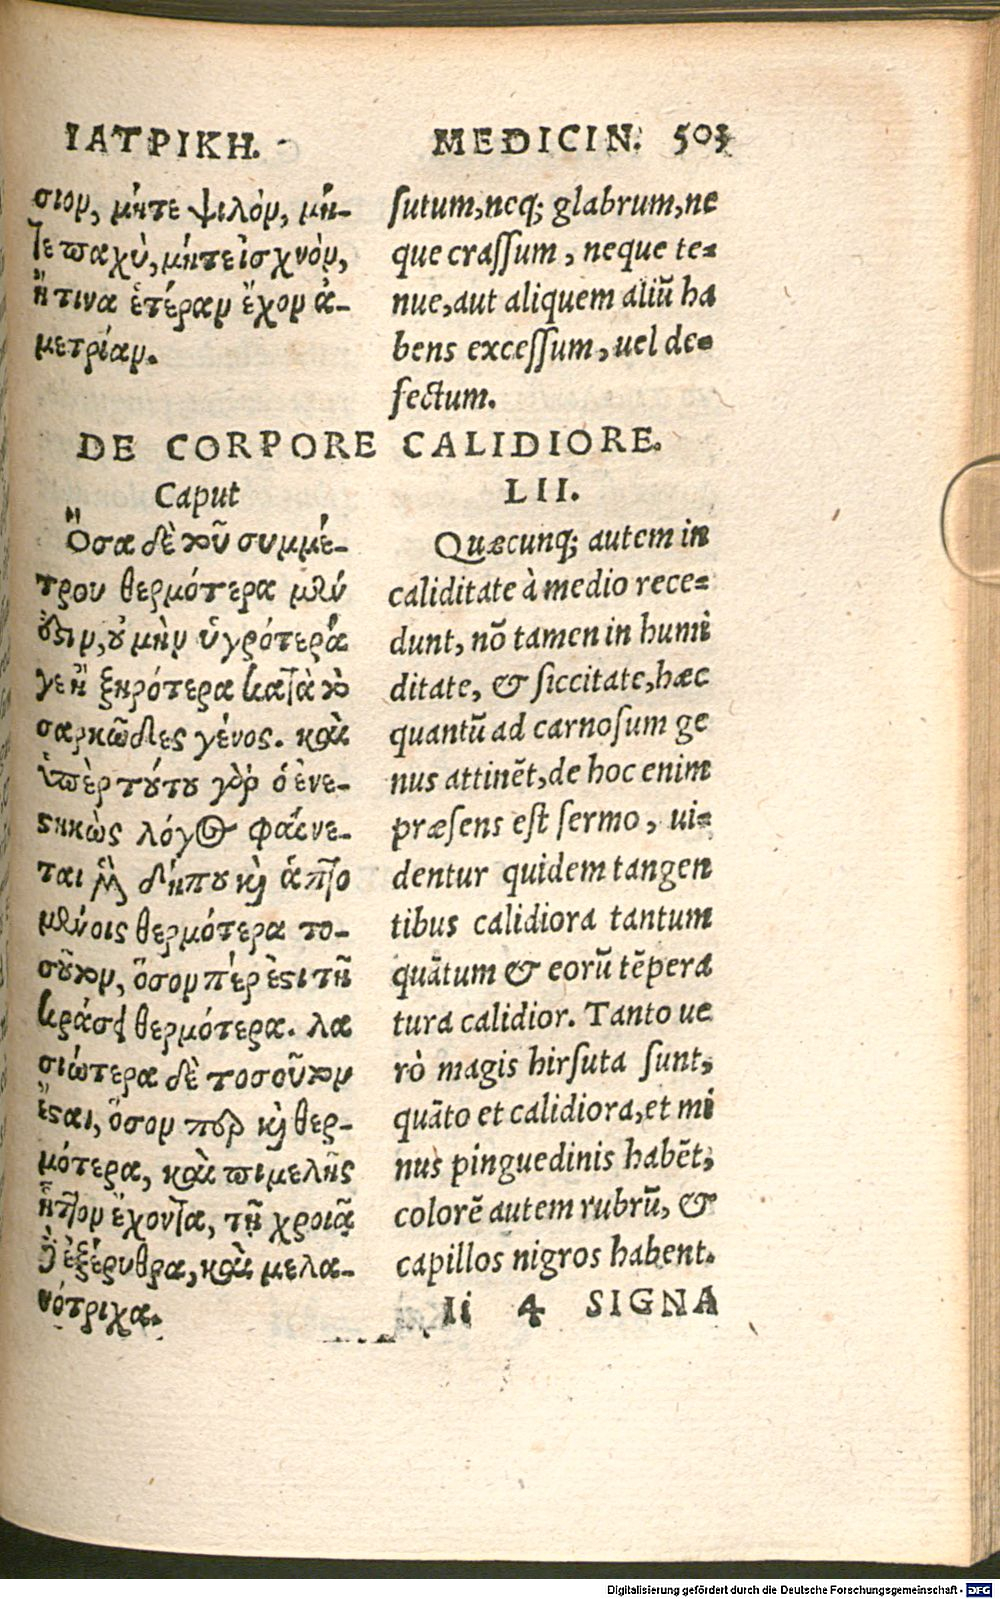 ΙΑΤΡΙΚΗ.
σιον, μήτε ψιλὸν, μή-
τε παχὺ, μήτε ἰσχνὸν,
ἤ τινα ἑτέραν ἔχον ἀ-
μετρίαν.
MEDICIN. 503
sutum, neq; glabrum, ne
que crassum, neque te-
nue, aut aliquem aliũ ha
bens excessum, uel de-
fectum.
DE CORPORE CALIDIORE.
Caput LII.
Ὅσα δὲ τοῦ συμμέ-
τρου θερμότερα μὲν
ἐστιν, οὐ μὴν ὑγρότερά
γε ἢ ξηρότερα κατὰ τὸ
σαρκῶδες γένος. καὶ
ὑπὲρ τούτου γὰρ ὁ ἐνε-
στηκὼς λόγος φαίνε-
ται μὲν δήπου καὶ ἁπτο
μένοις θερμότερα το-
σοῦτον, ὅσον πέρ ἐστι τῇ
κράσει θερμότερα. λα
σιώτερα δὲ τοσοῦτον
ἔσται, ὅσον περ καὶ θερ-
μότερα, καὶ πιμελῆς
ἧττον ἔχοντα, τῇ χροιᾷ
δὲ ἐξέρυθρα, καὶ μελα-
νότριχα.
Quæcunq; autem in
caliditate à medio rece-
dunt, nõ tamen in humi
ditate, & siccitate, hæc
quantũ ad carnosum ge
nus attinẽt, de hoc enim
præsens est sermo, ui-
dentur quidem tangen
tibus calidiora tantum
quãtum & eorũ tẽpera
tura calidior. Tanto ue
rò magis hirsuta sunt,
quãto et calidiora, et mi
nus pinguedinis habẽt,
colorẽ autem rubrũ, &
capillos nigros habent.
Ii 4 SIGNA
Digitalisierung gefördert durch die Deutsche Forschungsgemeinschaft - DFG